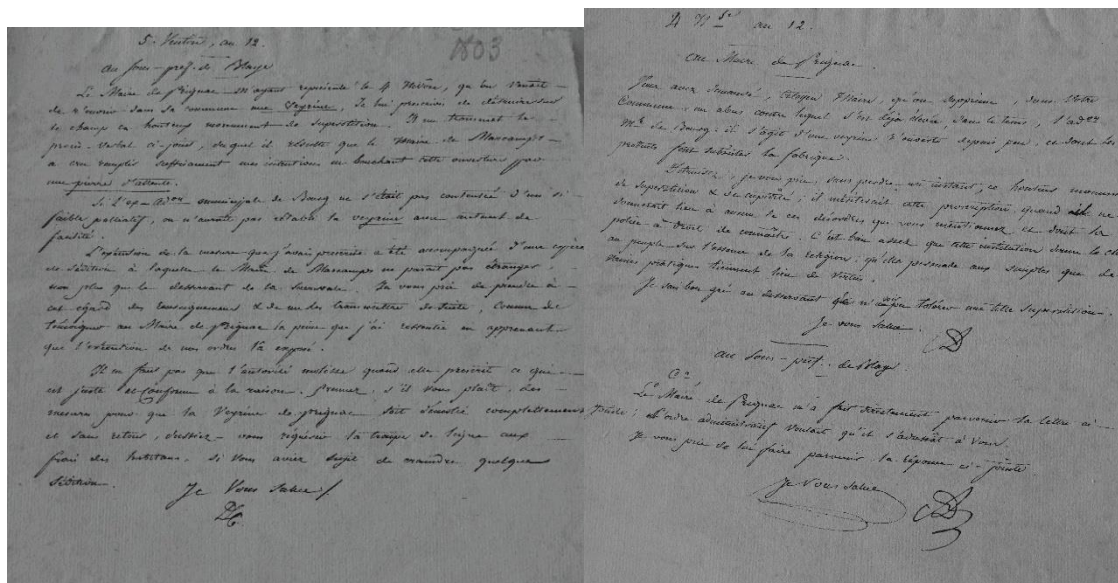 5 Ventôse, an 12.
1803
au Sous-préf. de Blaye
Le Maire de Prignac m'ayant représenté le 4 Nivôse, qu'on venait
de r'ouvrir dans sa commune une Veyrine, Je lui prescrivis de détruire sur
le champ ce honteux monument de superstition. Il m'a transmis le
procès-verbal ci-joint, duquel il résulte que le Maire de Marcamps
a cru remplir suffisamment mes intentions en bouchant cette ouverture par
une pierre d'attente.
Si l'ex-adon municipale de Bourg ne s'était pas contentée d'un si
faible palliatif, on n'aurait pas rétabli la veyrine avec autant de
facilité.
L'exécution de la mesure que j'avais prescrite a été accompagnée d'une espèce
de sédition à laquelle le Maire de Marcamps ne parait pas étranger,
non plus que le desservant de la succursale. Je vous prie de prendre à
cet égard des renseignements & de me les transmettre de suite, comme de
témoigner au Maire de Prignac la peine que j'ai ressentie en apprenant
que l'exécution de mes ordres l'a exposé.
Il ne faut pas que l'autorité mollisse quand elle prescrit ce qui
est juste et conforme à la raison. Prenez, s'il vous plaît, des
mesures pour que la Veyrine de Prignac soit démolie complettement
et sans retour, dussiez-vous requérir la troupe de ligne aux
frais des habitans, si vous aviez sujet de craindre quelque
sédition.
Je Vous salue
4 Nse an 12.
au Maire de Prignac.
Vous avez demandé, Citoyen Maire, qu'on supprime, dans votre
Commune, un abus contre lequel s'est déjà élevée, dans le tems, l'adon
mle de Bourg: il s'agit d'une veyrine r'ouverte depuis peu, et dont les
produits font subsister la fabrique.
Détruisez, je vous prie, sans perdre un instant, ce honteux monument
de superstition & de cupidité; il mériterait cette proscription, quand il ne
donnerait lieu à aucun de ces désordres que vous mentionnez et dont la
police a droit de connaître. C'est bien assez que cette institution donne le change
au peuple sur l'essence de la religion, qu'elle persuade aux simples que de
vaines pratiques tiennent lieu de vertus.
Je sais bon gré au desservant de n'avoir pas voulu tolérer une telle superstition.
Je vous salue.
au Sous-préf. de Blaye
Cn
Le Maire de Prignac m'a fait directement parvenir la lettre ci-
jointe; l'ordre administratif voulait qu'il s'adressât à vous.
Je vous prie de lui faire parvenir la réponse ci-jointe
Je Vous salue